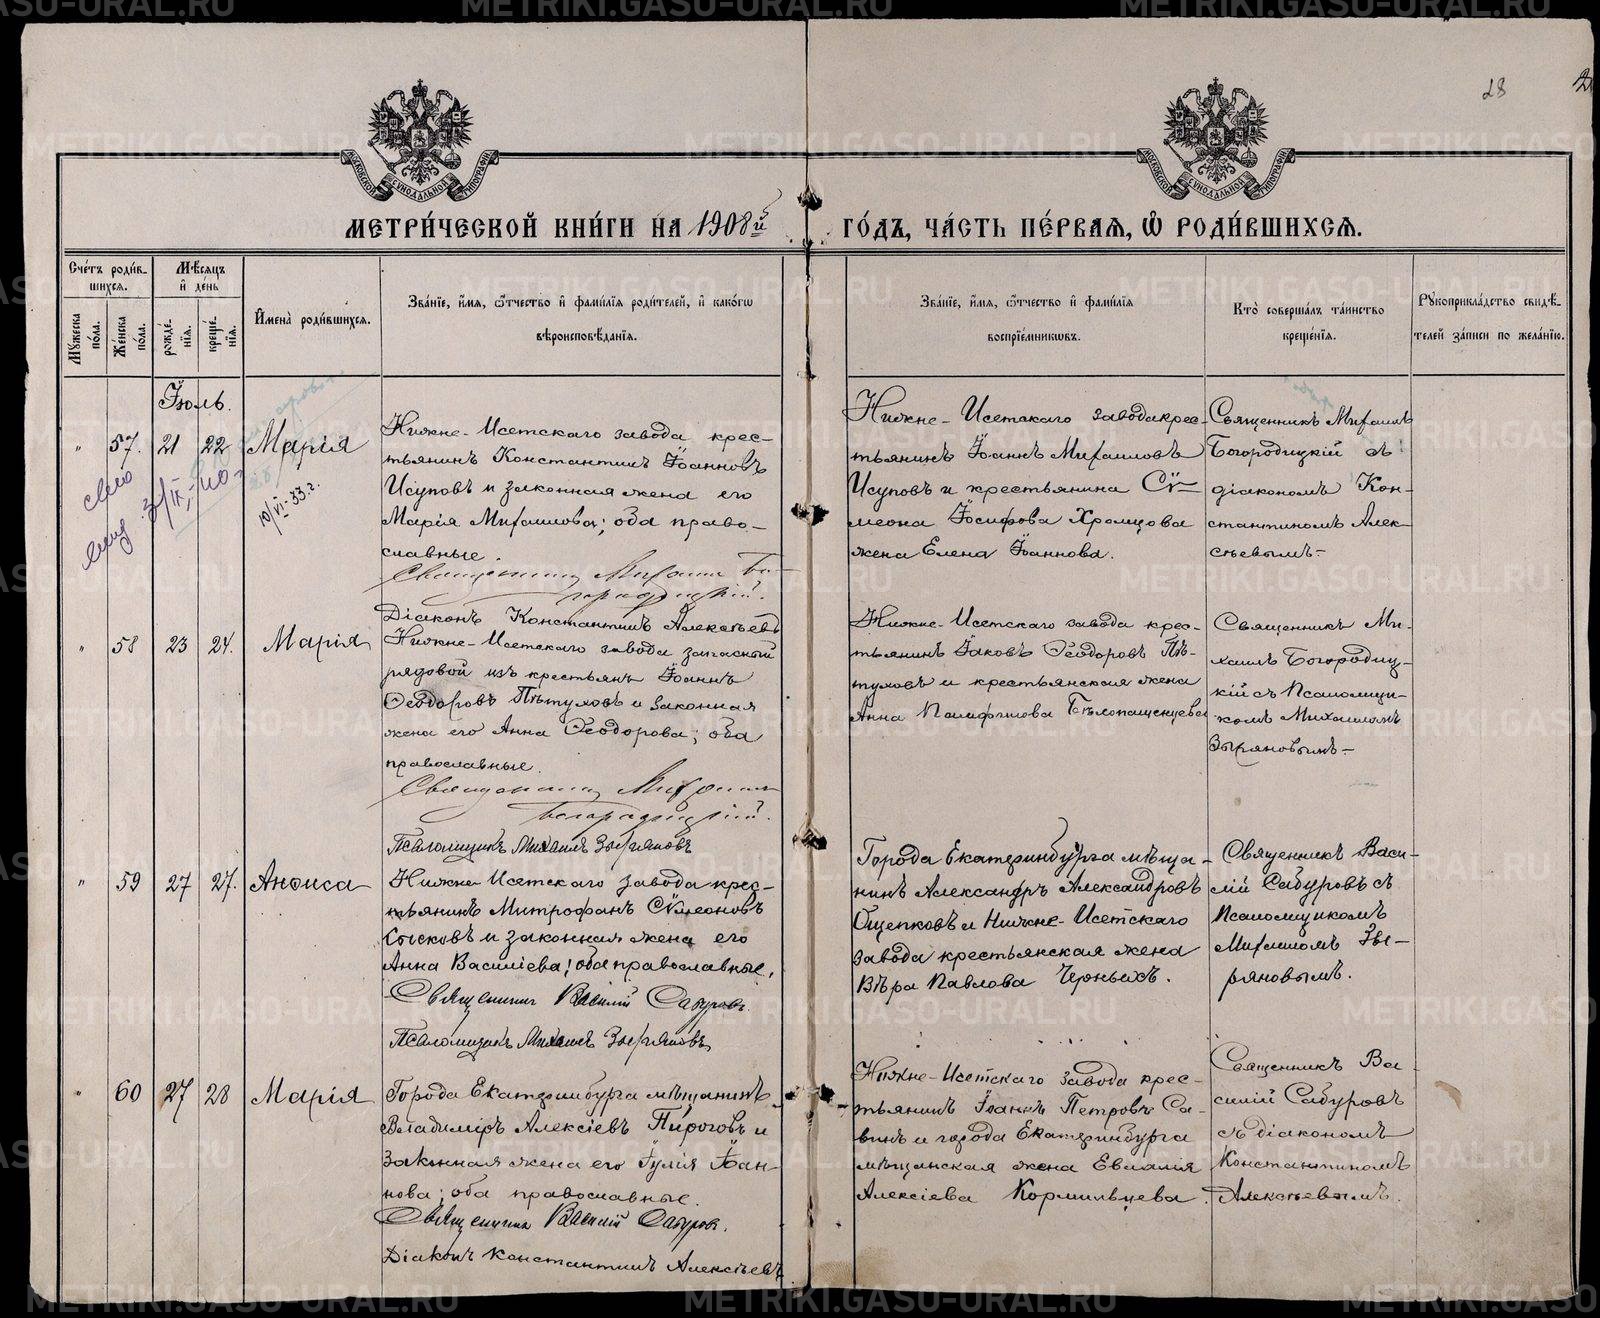 28
МЕТРИ́ЧЕСКОЙ КНИ́ГИ НА 1908й ГО́ДЪ, ЧА́СТЬ ПЕ́РВАЯ, Ѡ РОДИ́ВШИХСЯ.
МОСКОВСКОЙ СѴНОДАЛЬНОЙ ТИПОГРАФІИ
МОСКОВСКОЙ СѴНОДАЛЬНОЙ ТИПОГРАФІИ
Сче́тъ роди́вшихся.
Мꙋжеска по́ла.
Же́нска по́ла.
Мѣ́сяцъ и҆ де́нь
рожде́нїя.
креще́нїя.
И҆мена̀ роди́вшихся.
Зва́нїе, и҆́мя, ѻ҆́тчество и҆ фами́лїя роди́телей, и҆ како́гѡ
вѣроисповѣ́данїя.
Зва́нїе, и҆́мя, ѻ҆́тчество и҆ фами́лїя
воспрїе́мникѡвъ.
Кто̀ соверша́лъ та́инство
креще́нїя.
Рꙋкоприкла́дство свидѣ́-
телей за́писи по жела́нїю.
Іюль.
" 57. 21 22 Марія
10/VI-33.г.
Нижне-Исетскаго завода крес-
тьянинъ Константинъ Іоанновъ
Исуповъ и законная жена его
Марія Михаилова; оба право-
славные.
Священникъ Михаилъ Бо-
городицкій.
Діаконъ Константинъ Алексѣевъ
Нижне-Исетскаго завода крес-
тьянинъ Іоаннъ Михаиловъ
Исуповъ и крестьянина Сѵ-
меона Іосифова Храмцова
жена Елена Іоаннова.
Священникъ Михаилъ
Богородицкій съ
діакономъ Кон-
стантиномъ Алек-
сѣевымъ-
" 58 23 24. Марія
Нижне-Исетскаго завода запасный
рядовой изъ крестьянъ Іоаннъ
Ѳеодоровъ Пѣтуховъ и законная
жена его Анна Ѳеодорова; оба
православные.
Священникъ Михаилъ
Богородицкій.
Псаломщикъ Михаилъ Зыряновъ
Нижне-Исетскаго завода крес-
тьянинъ Іаковъ Ѳеодоровъ Пѣ-
туховъ и крестьянская жена
Анна Памфилова Бѣлопашенцева
Священникъ Ми-
хаилъ Богородиц-
кій съ Псаломщи-
комъ Михаиломъ
Зыряновымъ-
" 59 27 27. Анѳиса
Нижне-Исетскаго завода крес-
тьянинъ Митрофанъ Сѵмеоновъ
Сысковъ и законная жена его
Анна Василіева; оба православные.
Священникъ Василій Сабуровъ.
Псаломщикъ Михаилъ Зыряновъ
Города Екатеринбурга мѣща-
нинъ Александръ Александровъ
Ощепковъ и Нижне-Исетскаго
завода крестьянская жена
Вѣра Павлова Черныхъ.
Священникъ Васи-
лій Сабуровъ съ
Псаломщикомъ
Михаиломъ Зы-
ряновымъ.
" 60 27 28 Марія
Города Екатеринбурга мѣщанинъ
Владиміръ Алексіевъ Пироговъ и
законная жена его Іулія Іоан-
нова; оба православные.
Священникъ Василій Сабуровъ.
Діаконъ Константинъ Алексѣевъ
Нижне-Исетскаго завода крес-
тьянинъ Іоаннъ Петровъ Са-
винъ и города Екатеринбурга
мѣщанская жена Евлалія
Алексіева Кормильцева.
Священникъ Ва-
силій Сабуровъ
съ діакономъ
Константиномъ
Алексѣевымъ.
METRIKI.GASO-URAL.RU